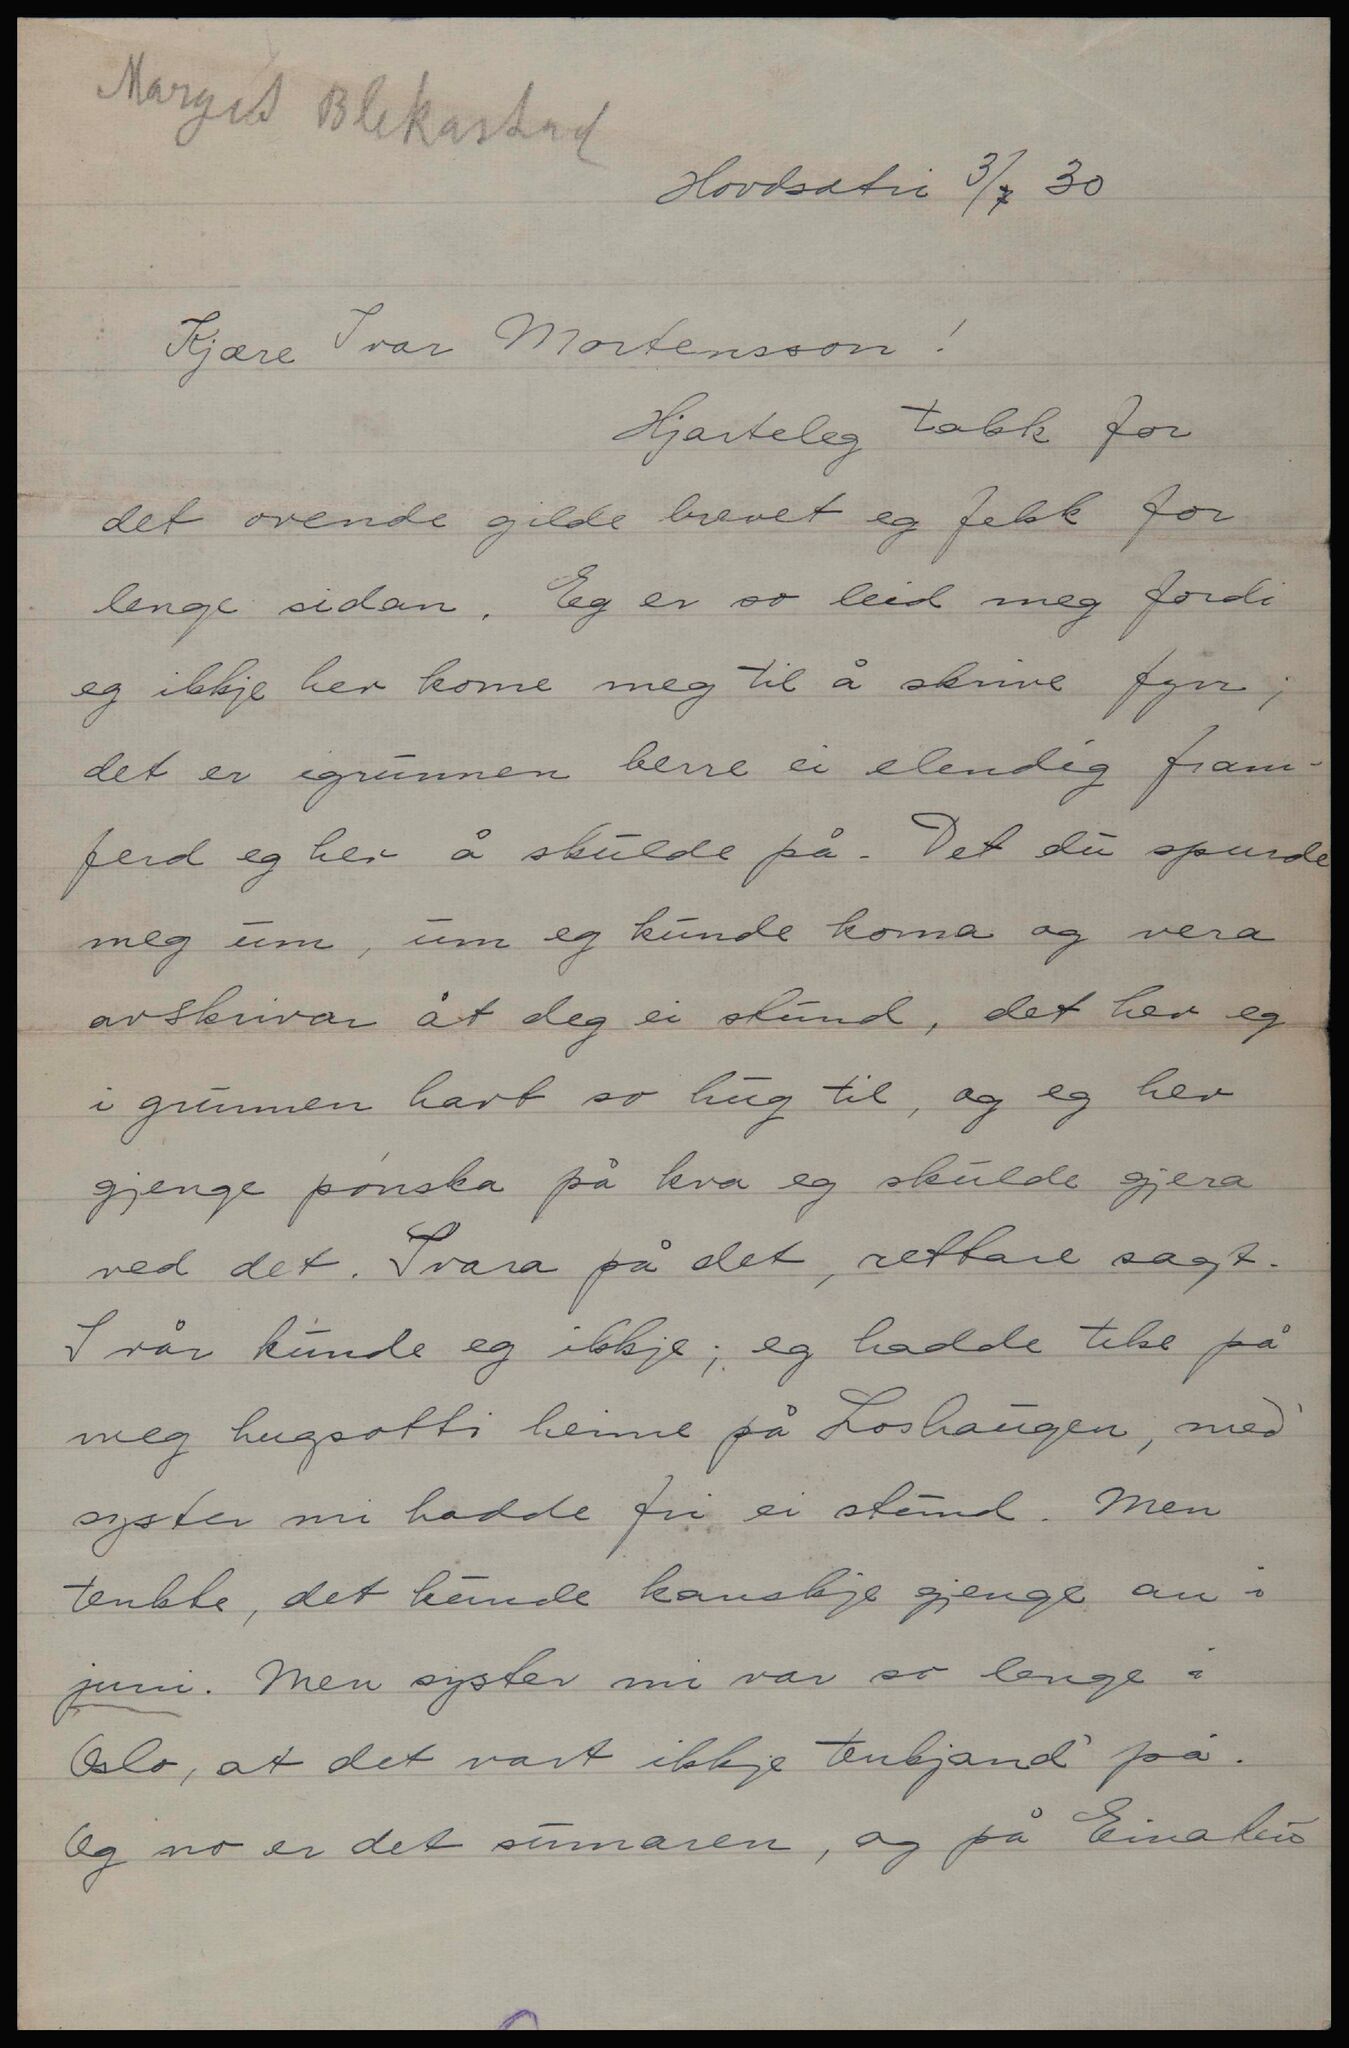 Margit Blekastad
Hovdsætri 3/7 30
Kjære Ivar Mortensson!
Hjarteleg takk for
det ovende gilde brevet eg fekk for
lenge sidan. Eg er so leid meg fordi
eg ikkje hev kome meg til å skrive fyrr;
det er igrunnen berre ei elendig fram-
ferd eg hev å skulde på. Det du spurde
meg um, um eg kunde koma og vera
avskrivar åt deg ei stund, det hev eg
i grunnen havt so hug til, og eg hev
gjenge pønska på kva eg skulde gjera
ved det. Svara på det, rettare sagt.
I vår kunde eg ikkje; eg hadde teke på
meg hugsotti heime på Loshaugen, med
syster mi hadde fri ei stund. Men
tenkte, det kunde kanskje gjenge an i
juni. Men syster mi var so lenge i
Oslo, at det vart ikkje tenkjand' på.
Og no er det sumaren, og på